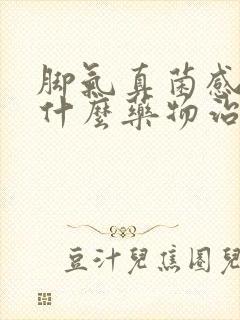 脚氣真菌感
什麼藥物治
豆汁兒焦圈兒